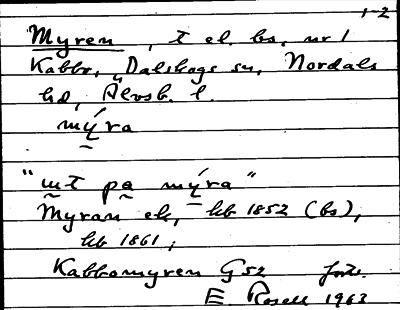 1-2
Myren, t el. bs. nr 1
Kabbo, Dalskogs sn, Nordals
hd, Älvsb. l.
mýra
"ut pa mýra"
Myran ek, kb 1852 (bs),
kb 1861;
Kabbomyren G52 forts.
E. Rosell 1963